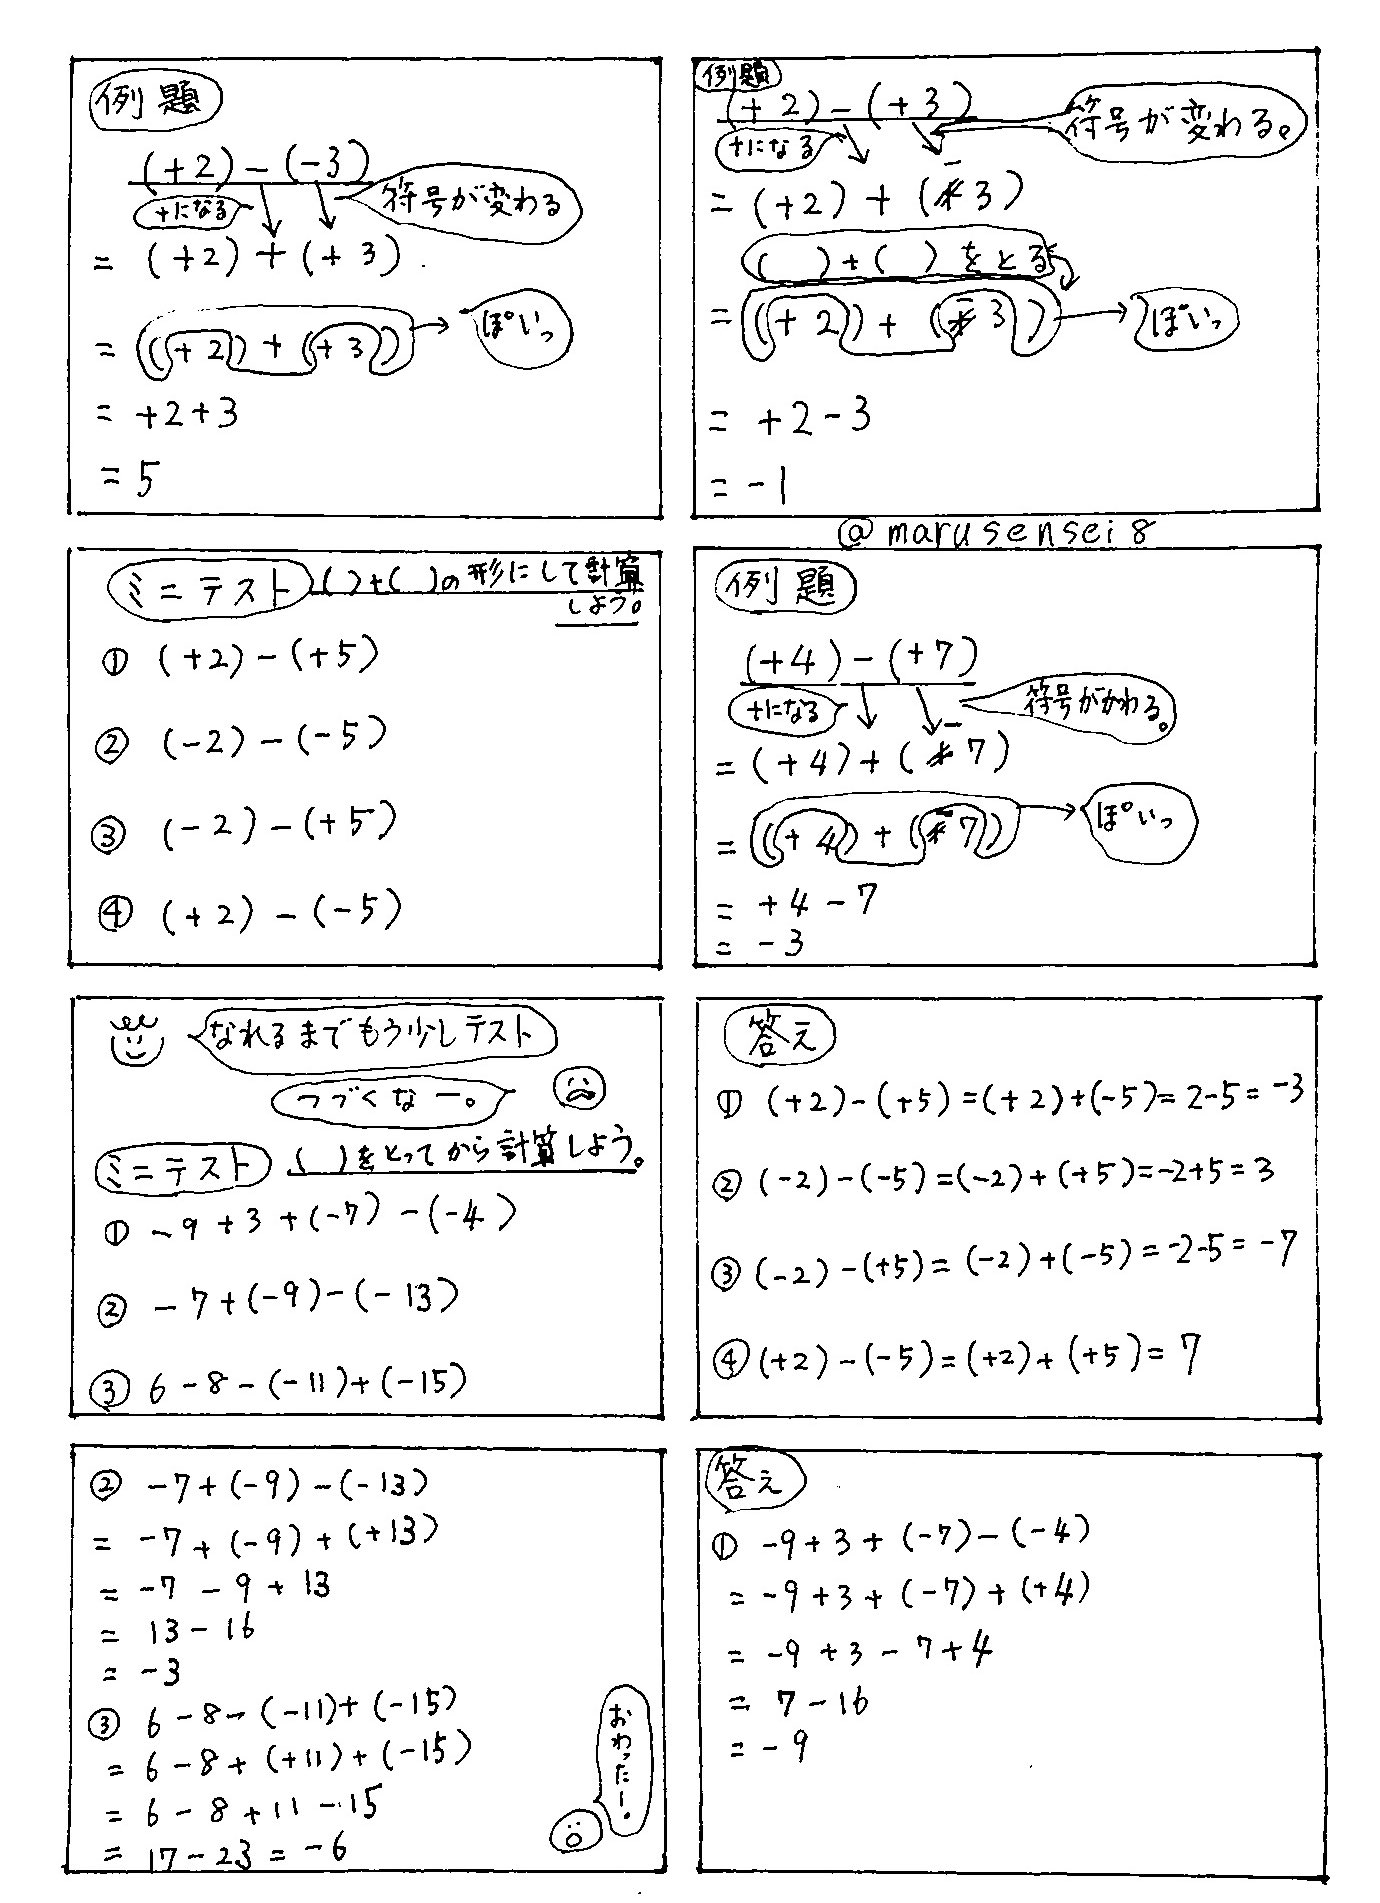 例題
(+2)-(-3)
+になる
符号が変わる
=(+2)+(+3)
=((+2))+(+3))
ぽいっ
=+2+3
=5
例題
(+2)-(+3)
符号が変わる。
+になる
-
=(+2)+(3)
( )+( )をとる
=((+2))+(-3))
ぽいっ
=+2-3
=-1
@marusensei8
ミニテスト ( )+( )の形にして計算
しよう。
① (+2)-(+5)
② (-2)-(-5)
③ (-2)-(+5)
④ (+2)-(-5)
例題
(+4)-(+7)
+になる
符号がかわる。
-
=(+4)+(7)
=((+4))+(-7))
ぽいっ
=+4-7
=-3
なれるまでもう少しテスト
つづくなー。
ミニテスト ( )をとってから計算しよう。
① -9+3+(-7)-(-4)
② -7+(-9)-(-13)
③ 6-8-(-11)+(-15)
答え
① (+2)-(+5)=(+2)+(-5)=2-5=-3
② (-2)-(-5)=(-2)+(+5)=-2+5=3
③ (-2)-(+5)=(-2)+(-5)=-2-5=-7
④ (+2)-(-5)=(+2)+(+5)=7
② -7+(-9)-(-13)
=-7+(-9)+(+13)
=-7-9+13
=13-16
=-3
③ 6-8-(-11)+(-15)
=6-8+(+11)+(-15)
=6-8+11-15
=17-23=-6
おわったー。
答え
① -9+3+(-7)-(-4)
=-9+3+(-7)+(+4)
=-9+3-7+4
=7-16
=-9